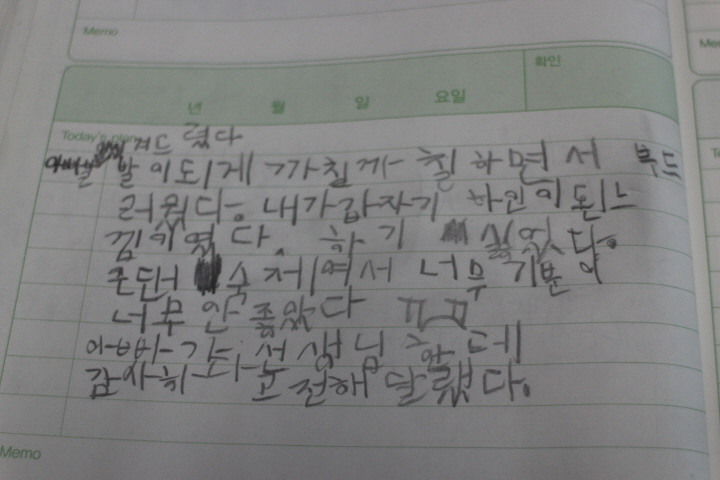 Memo
확인
년 월 일 요일
Today's plan
겨드렸다
아빠발
발이되게 까칠까칠하면서 부드
러웠다. 내가갑자기 하인이된느
낌이였다. 하기 싫었다.
근단서 숙제여서 너무 기분이
너무 안좋았다 ㅠㅠ
아빠가 선생님한데
감사하다고 전해달랬다.
Memo